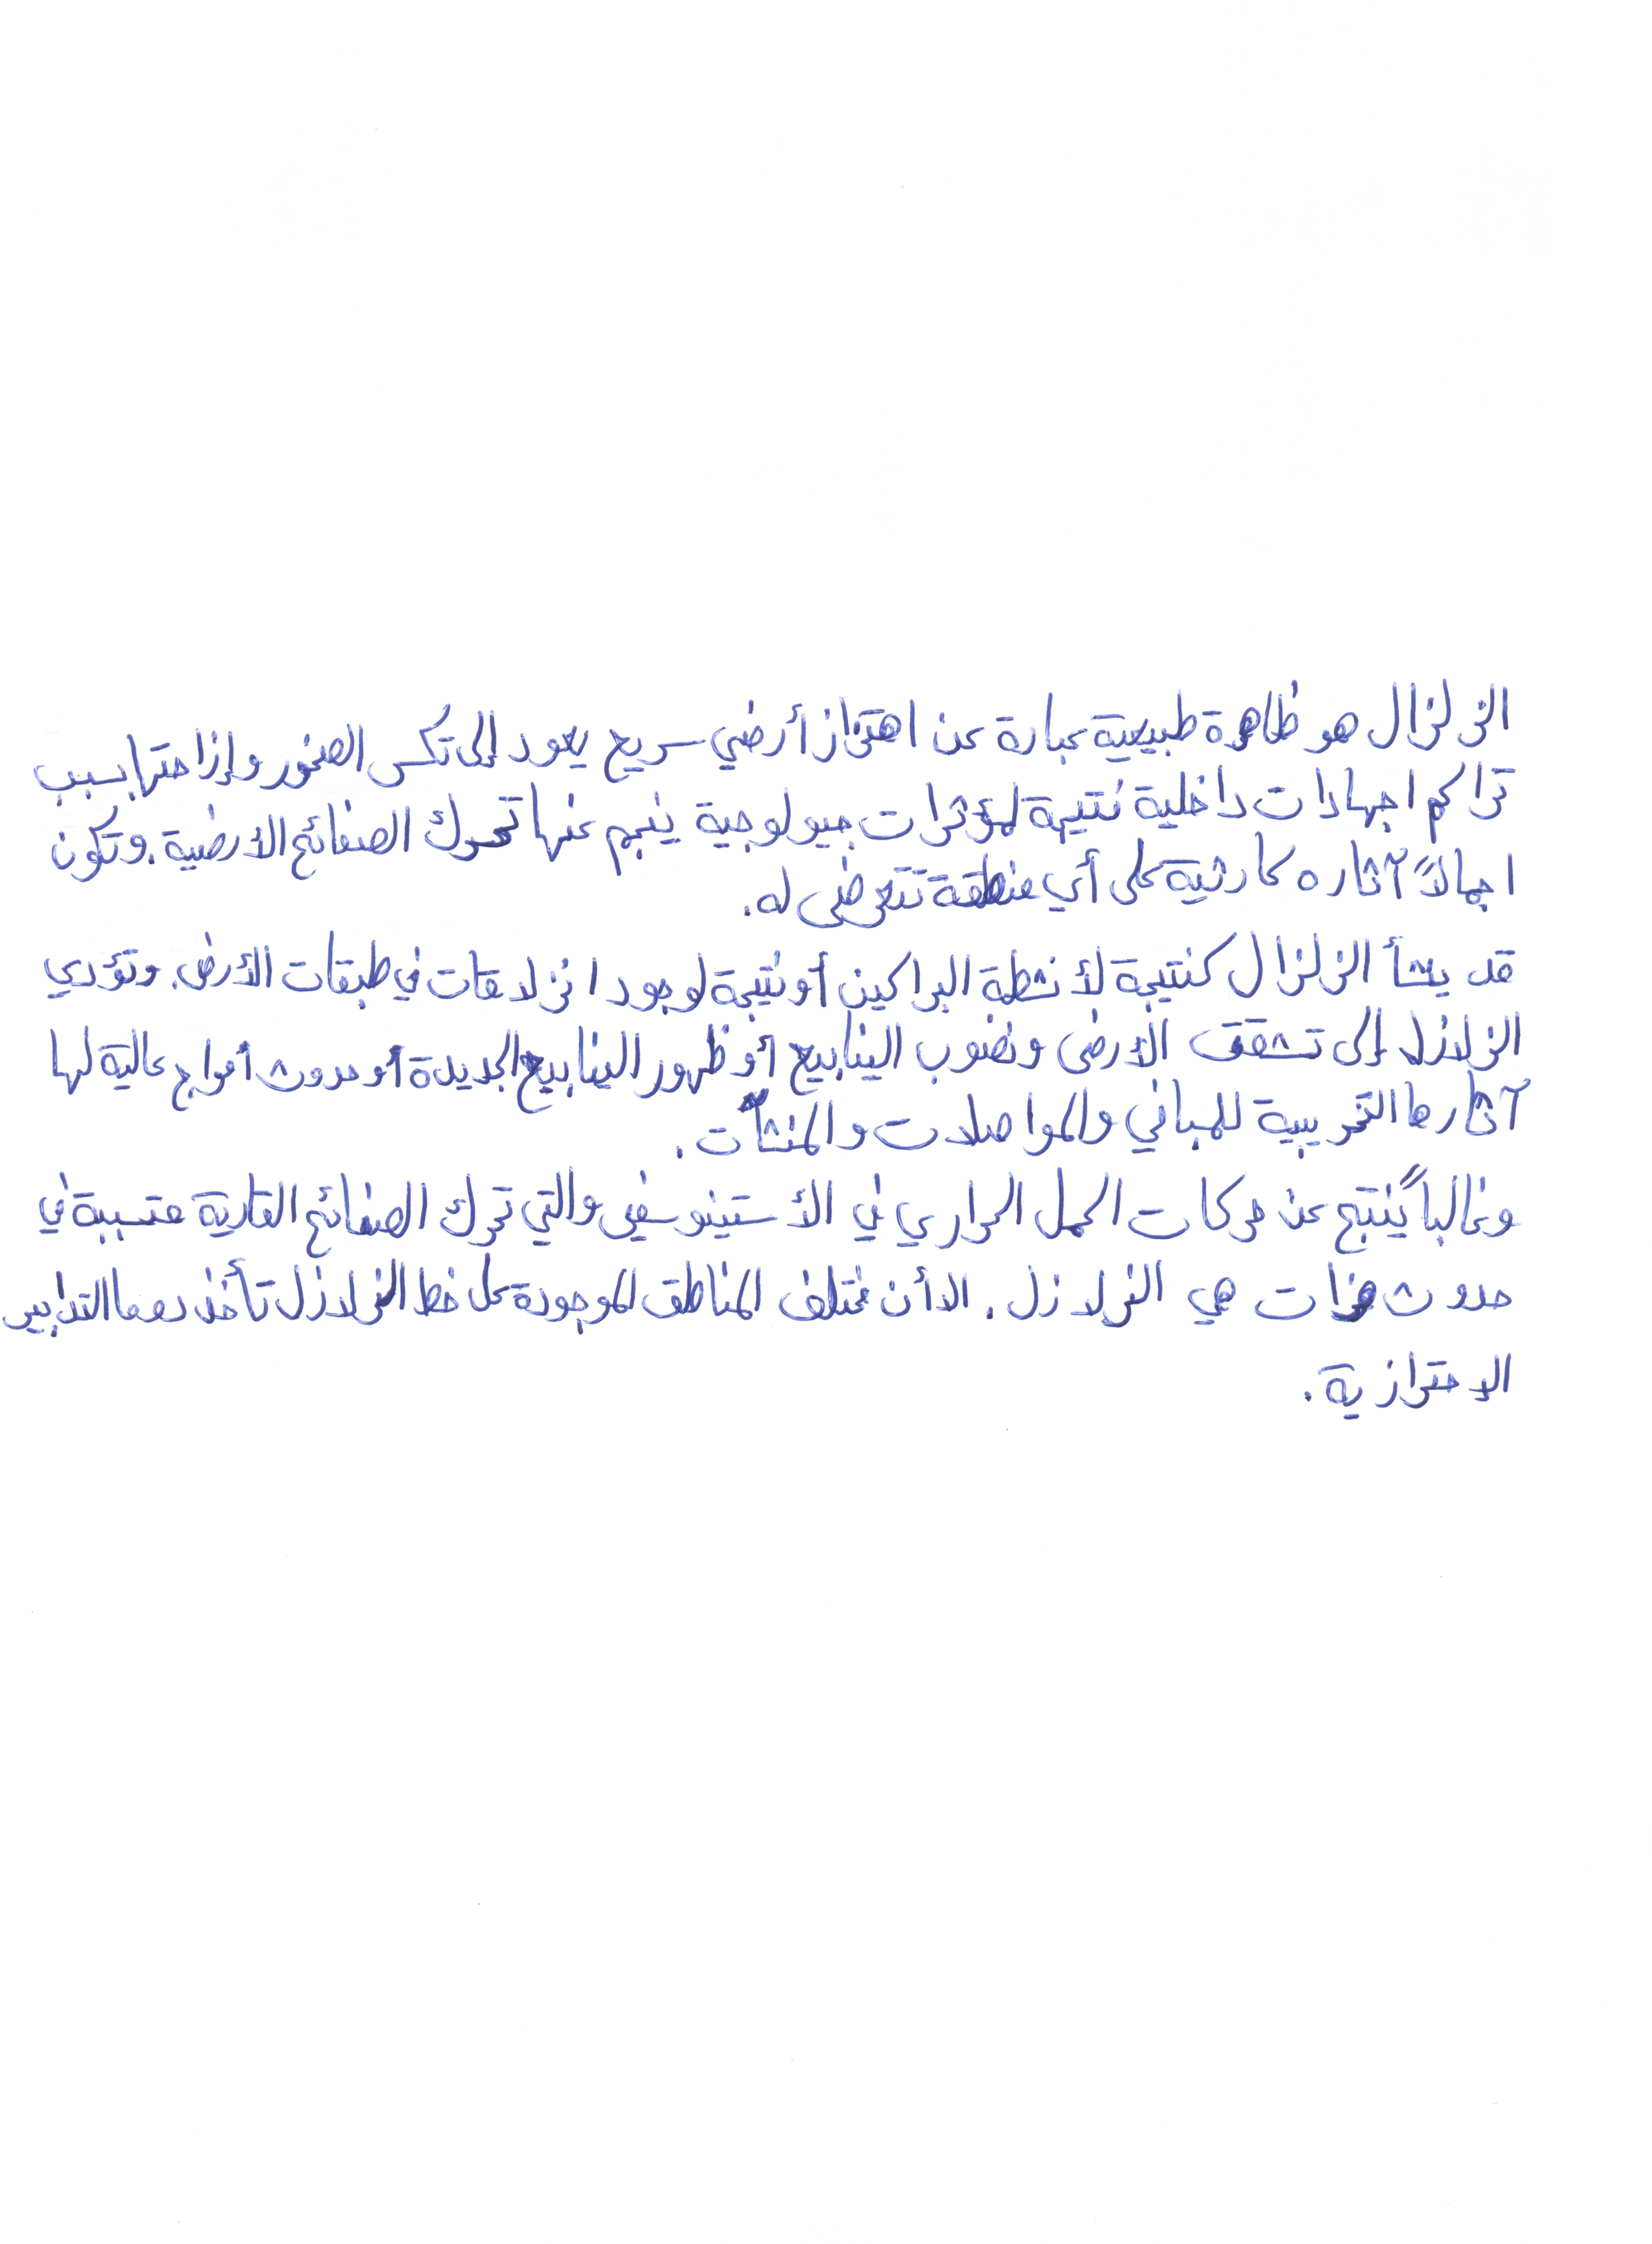 الزلزال هو ظاهرة طبيعية عبارة عن اهتزاز أرضي سريع يعود إلى تكسر الصخور وإزاحتها بسبب
تراكم اجهادات داخلية نتيجة لمؤثرات جيولوجية ينجم عنها تحرك الصفائح الأرضية. وتكون
اجمالاً آثاره كارثية على أي منطقة تتعرض له.
قد ينشأ الزلزال كنتيجة لأنشطة البراكين أو نتيجة لوجود انزلاقات في طبقات الأرض. وتؤدي
الزلازل إلى تشقق الأرض ونضوب الينابيع أو ظهور الينابيع الجديدة أو حدوث أمواج عالية لها
آثارها التخريبية للمباني والمواصلات والمنشآت.
وغالباً ينتج عن حركات الحمل الحراري في الأستينوسفير والتي تحرك الصفائح القارية متسببة في
حدوث هزات هي الزلازل. الا أن مختلف المناطق الموجودة على خط الزلازل تأخذ دوما التدابير
الاحترازية.